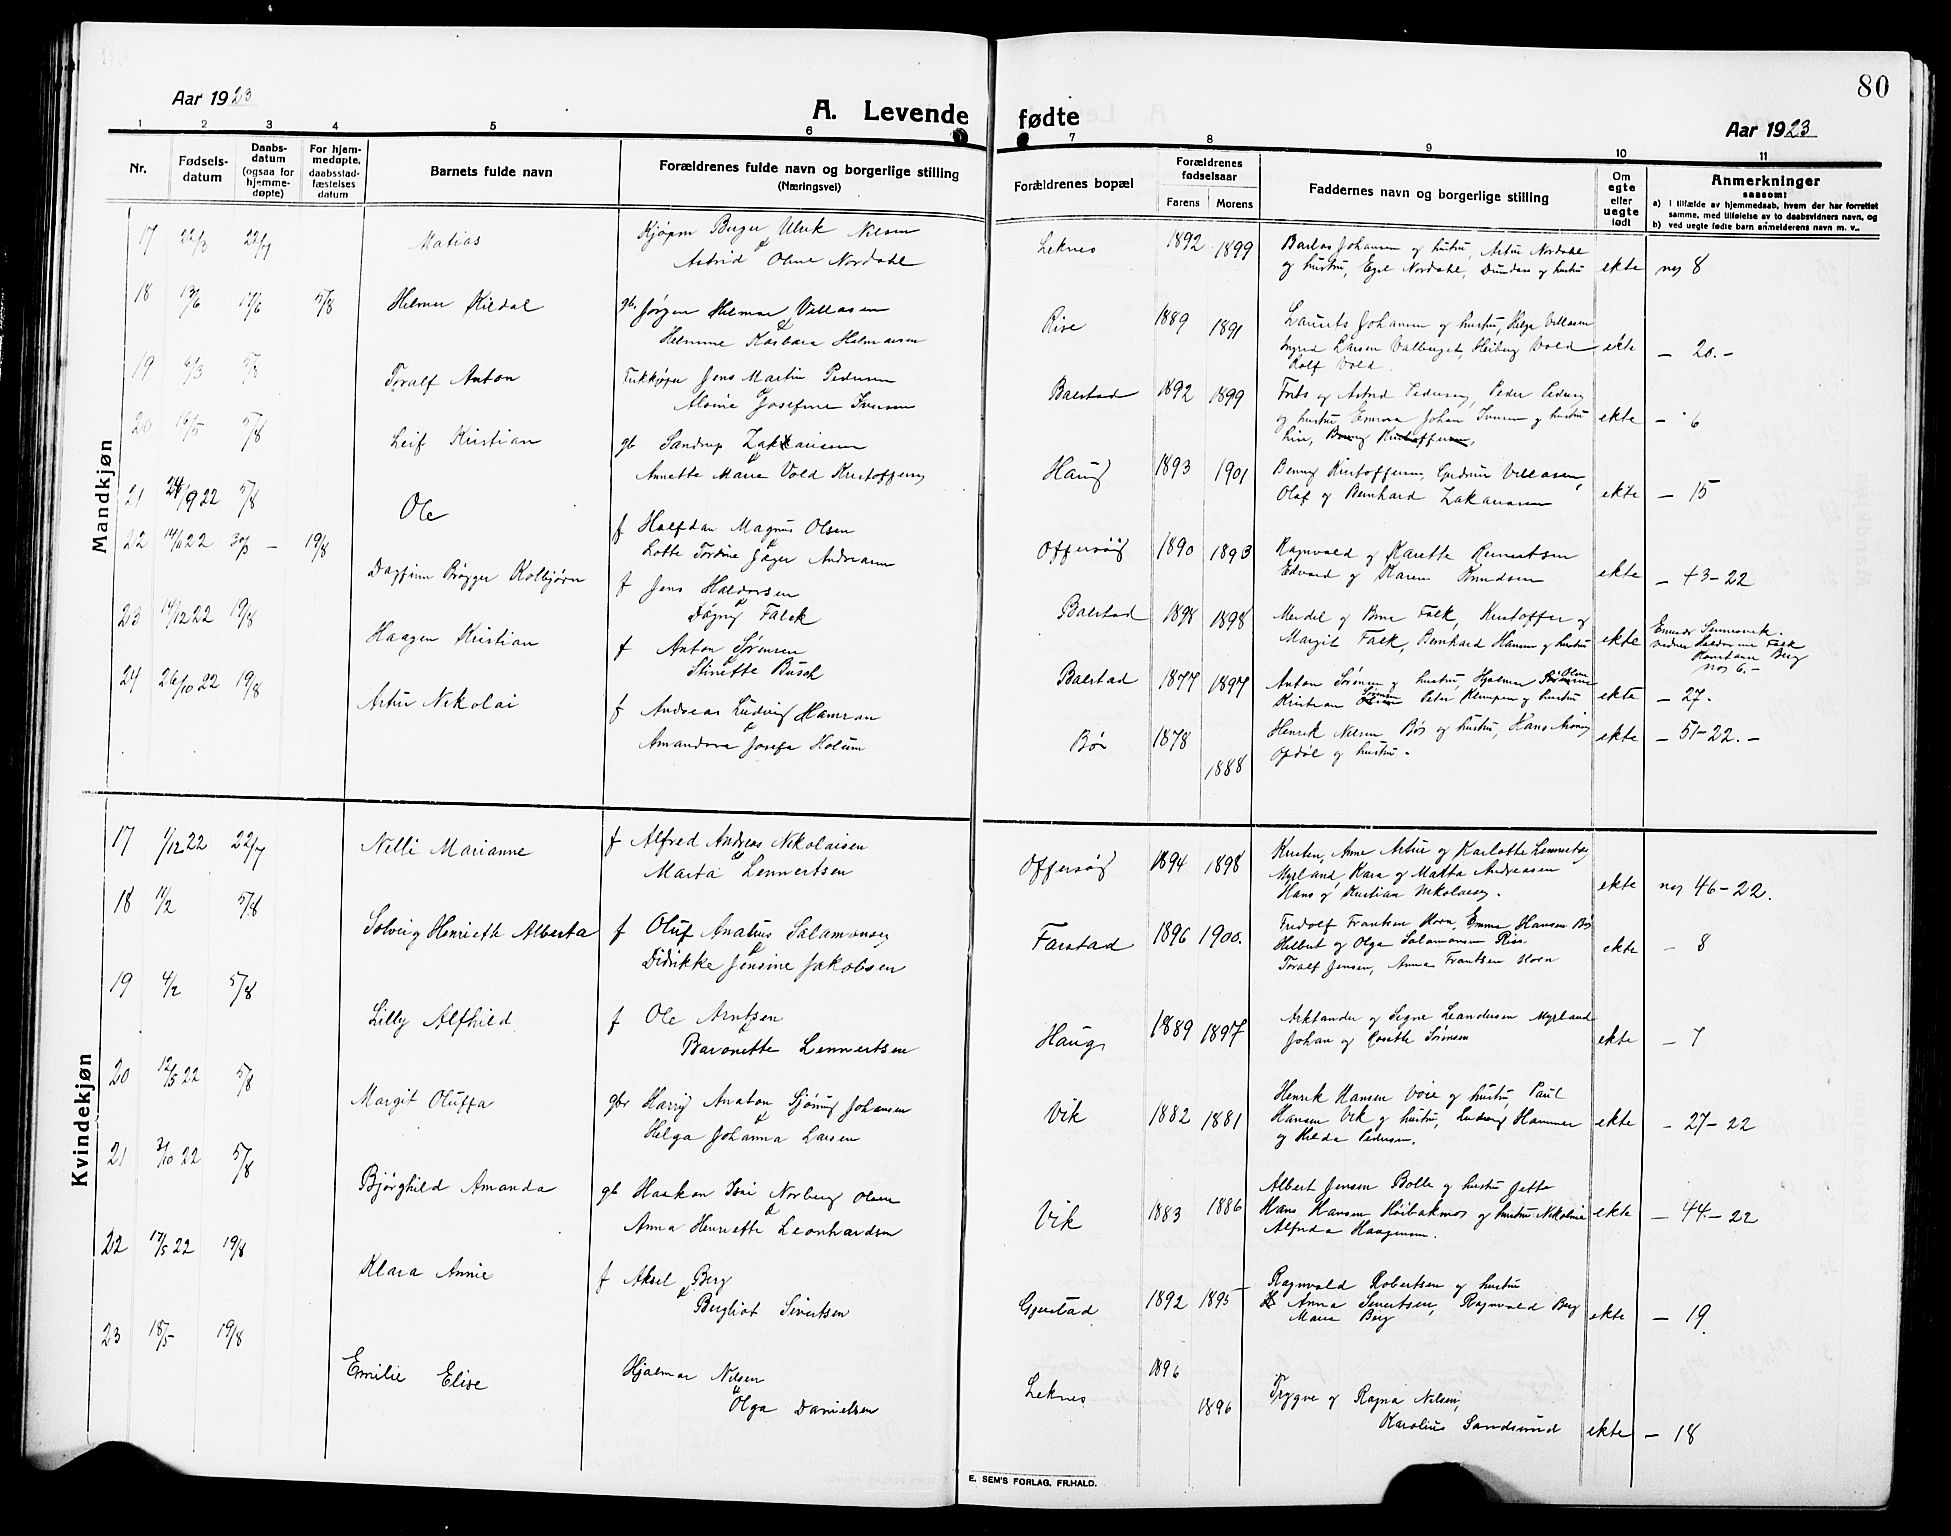 80
Aar 1923
A. Levende fødte
Aar 1923
1 2 3 4 5 6 7 8 9 10 11
Nr.
Fødsels-
datum
Daabs-
datum
(ogsaa for
hjemme-
døpte)
For hjem-
medøpte,
daabsstad-
fæstelses
datum
Barnets fulde navn
Forældrenes fulde navn og borgerlige stilling
(Næringsvei)
Forældrenes bopæl
Forældrenes
fødselsaar
Farens Morens
Faddernes navn og borgerlige stilling
Om
egte
eller
uegte
født
Anmerkninger
saasom:
a) I tilfælde av hjemmedaab, hvem der har forrettet
samme, med tilføielse av to daabsvidners navn, og
b) ved uegte fødte barn anmelderens navn m. v..
Mandkjøn
17 22/3 22/7 Matias Kjøpm Birger Ulrik Nilsen
Astrid Oline Nordahl
Leknes 1892 1899 Johansen og hustru, Artur Nordahl
og hustru, Egil Nordahl, og hustru ekte 8
18 13/6 17/6 5/8 Helmer Kildal gb. Jørgen Helmar Villasen
Helmine Barbara Halmaisen
Rise 1889 1891 Laurits Johansen og hustru, Helga Villasen
Ingrid Larsen Heiberg Vold
Rolf Vold. ekte — 20.-
19 6/3 5/8 Toralf Anton Jens Martin Pedersen
Josefine Iversen
Balstad 1892 1899 og Astrid Pedersen, Peder
og hustru Johan Iversen og hustru
ekte — 6
20 16/5 5/8 Leif Kristian gb Sandrup Zakkariasen
Annette Marie Vold Kristoffersen
Haug 1893 1901 Benny Kristoffersen, Gudrun Villasen,
Olaf og Bernhard Zakariasen ekte — 15
21 24/9 22 5/8 Ole f Halfdan Magnus Olsen
Lotte Tordine Jæger Andreasen
Offersøy 1890 1893 Ragnvald og Karette Reinertsen
Edvard og Karen Knudsen ekte — 43-22
22 14/11 22 30/3 — 19/8 Dagfinn Brøgger Kolbjørn f Jens Haldorsen
Dagny Falck
Balstad 1898 1898 Mendel og Falk, Kristoffer og
Margit Falk, Bernhard Hansen og hustru ekte
Falk
Konstanse Berg
6.-
23 14/12 22 19/8 Haagen Kristian f Anton Sørensen
Stinette Busch
Balstad 1877 1897 Anton Sørensen og hustru, Hjalmar Olsen
Kristian Peter og hustru ekte — 27.
24 26/10 22 19/8 Artur Nikolai f Andreas Ludvig Hamran
Amandora Josefa Holum
Bør 1878 1888 Henrik Nilsen Bør og hustru, Hans
Opdøl og hustru. ekte — 51-22.-
Kvindekjøn
17 1/12 22 22/7 Nelli Marianne f Alfred Andreas Nikolaisen
Marta Lennertsen
Offersøy 1894 1898 Kristen, Anne Artur og Karlotte
Myrland Kara og Marta Andreasen
Hans og Kristian ekte 46-22.
18 11/2 5/8 Solvig Henriette Alberta f Oluf Anatus Salamonsen
Didrikke Jensine Jakobsen
Farstad 1896 1900. Fredolf Frantsen Horn, Emma Hansen Bø
Hilbert og Olga Salamonsen Rise
Toralf Jensen, Anna Frantsen Horn ekte — 8
19 4/2 5/8 Lilly Alfhild f Ole Arntsen
Baronette Lennertsen
Haug 1889 1897 Arktander og Signe Leandersen Myrland
Johan og Sørensen ekte — 7
20 12/5 22 5/8 Margit Oluffa gbr Harry Anaton Johansen
Helga Johanna Larsen
Vik 1882 1881 Henrik Hansen Voie og hustru Paul
Hansen Vik og hustru, Ludvig Hammer
og Hilda Pedersen. ekte — 27-22
21 3/10 22 5/8 Bjørghild Amanda gb Haakon Norberg Olsen
Anna Henriette Leonhardsen
Vik 1883 1886 Albert Jensen Bolle og hustru Jette
Hans Hansen og hustru Nikoline
Alfrida Haagensen. ekte — 44.-22
22 17/5 22 19/8 Klara Annie f Aksel Berg
Bergliot Sivertsen
Gjerstad 1892 1895 Ragnvald Robertsen og hustru
Anna Sivertsen, Ragnvald Berg
Marie Berg ekte — 19.
23 18/5 19/8 Emilie Elise Hjalmar Nilsen
Olga Danielsen
Leknes 1896 1896 Trygve og Ragna Nilsen,
Karolius Sandsund ekte — 18
E. SEM'S FORLAG, FR.HALD.